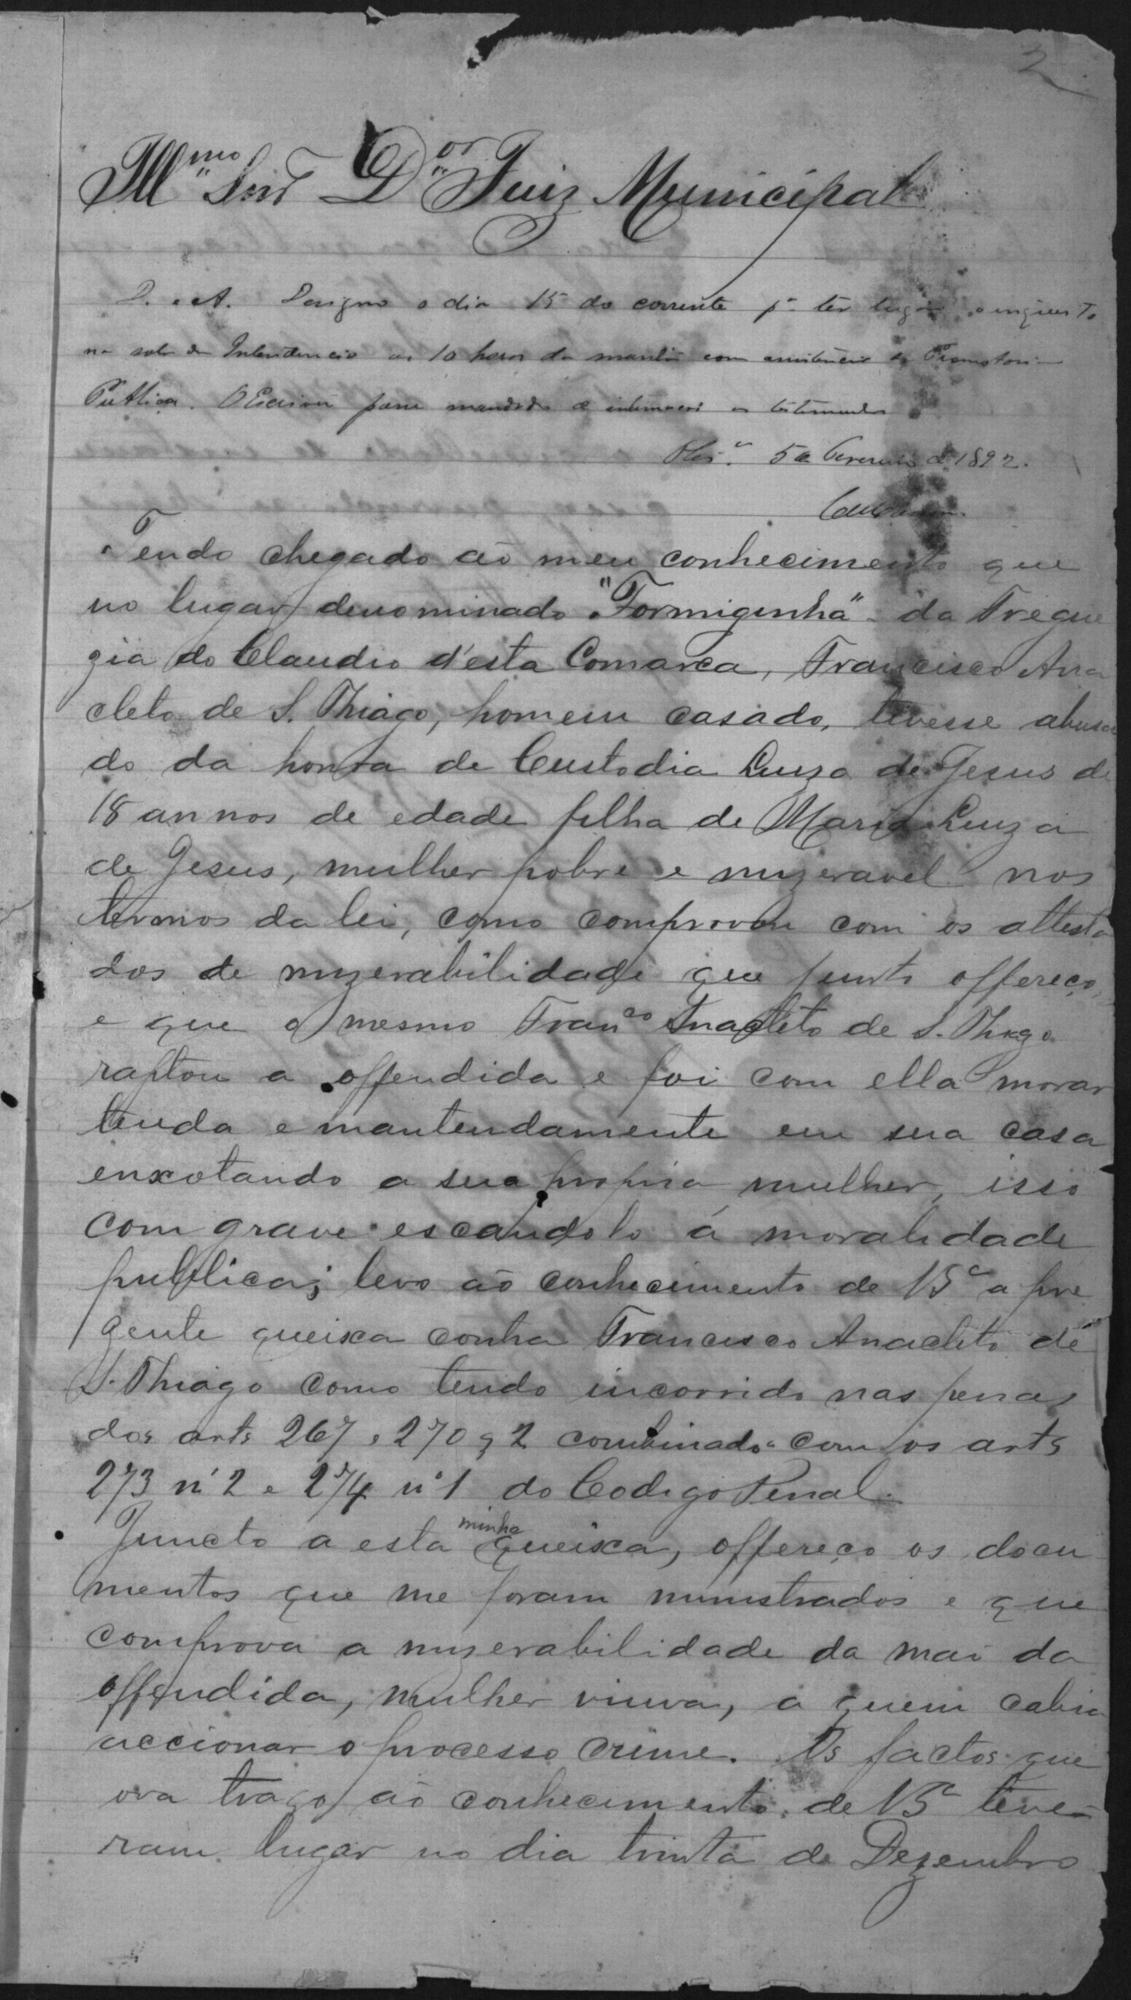 2
Ill.mo Snr D.or Juiz Municipal
D. e A. Designo o dia 15 do corrente p.a ter lugar o inquerito
na sala da Intendencia as 10 horas da manhã com assistencia da Promotoria
Publica. O Escrivão passe mandado e intimação as testemunhas
5 de Fevereiro de 1892.
Tendo chegado ao meu conhecimento que
no lugar denominado "Formiginha" da Fregue
zia do Claudio d'esta Comarca, Francisco Ana
cleto de S. Thiago, homem casado, tivesse abusa
do da honra de Custodia Luiza de Jesus de
18 annos de edade filha de Maria Luiza
de Jesus, mulher pobre e mizeravel nos
termos da lei, como comprovou com os attesta
dos de mizerabilidade que junto offereço,
e que o mesmo Fran.co Anacleto de S. Thiago
raptou a offendida e foi com ella morar
teuda e manteudamente em sua casa
enxotando a sua propria mulher, isso
com grave escandolo á moralidade
publica; levo ao conhecimento de VS.a a pre
zente queixa contra Francisco Anacleto de
S. Thiago como tendo incorrido nas penas
dos arts 267 e 270 § 2 combinados com os arts
273 nº 2 e 274 nº 1 do Codigo Penal.
Juncto a esta minha queixa, offereço os docu
mentos que me foram ministrados e que
comprova a mizerabilidade da mai da
offendida, mulher viuva, a quem cabia
accionar o processo crime. Os factos que
ora trago ao conhecimento de VS.a tive-
ram lugar no dia trinta de Dezembro